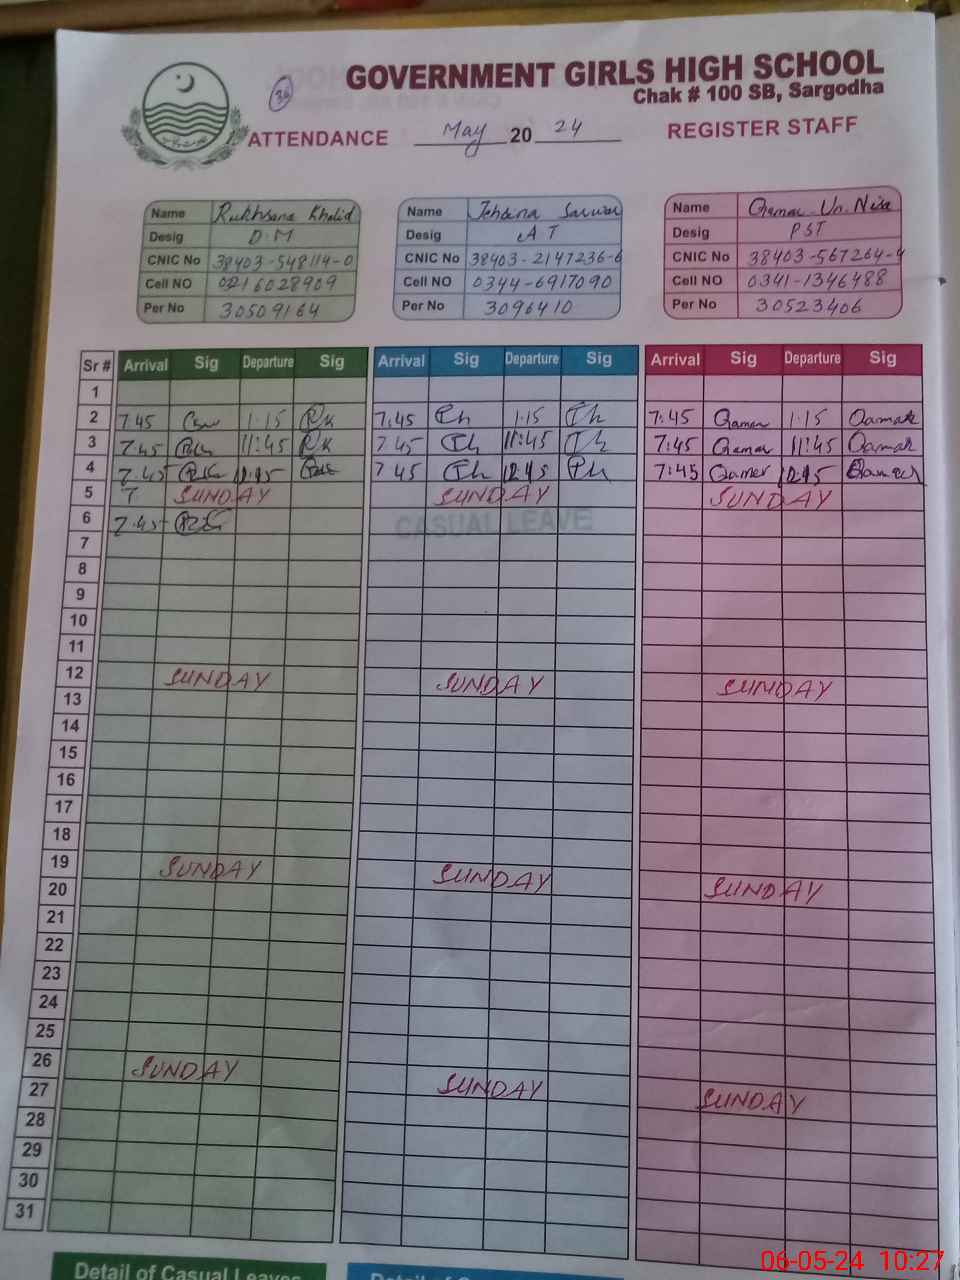 36
GOVERNMENT GIRLS HIGH SCHOOL
Chak # 100 SB, Sargodha
ATTENDANCE May 2024 REGISTER STAFF
Name Rukhsana Khalid
Desig D.M
CNIC No 38403-548114-0
Cell NO 0216028909
Per No 30509164
Name Sarwar
Desig A T
CNIC No 38403-2147236-6
Cell NO 0344-6917090
Per No 3096410
Name Qamar-Un-Nisa
Desig PST
CNIC No 38403-567264-4
Cell NO 0341-1346488
Per No 30523406
Sr # Arrival Sig Departure Sig Arrival Sig Departure Sig Arrival Sig Departure Sig
1
2 7.45 1.15 Rk 7:45 Th 1.15 Th 7:45 Qamar 1.15 Qamar
3 7.45 11:45 Rk 7.45 Th 11:45 Th 7:45 Qamar 11:45 Qamar
4 7.45 12:45 7 45 Th 12:45 Th 7:45 Qamer 12:45
5 7 SUNDAY SUNDAY SUNDAY
6 7.45 CASUAL LEAVE
7
8
9
10
11
12 SUNDAY SUNDAY SUNDAY
13
14
15
16
17
18
19 SUNDAY SUNDAY
20 SUNDAY
21
22
23
24
25
26 SUNDAY SUNDAY
27 SUNDAY
28
29
30
31
Detail of Casual Leaves
06-05-24 10:27